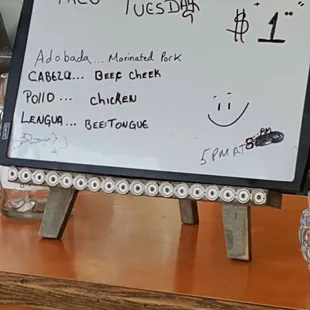 TUESDAY
$1
Adobada... Marinated Pork
CABEZA... BEEF CHEEK
POllO... chicKEN
LENGUA... BEE:TONGUE
5PM
PM